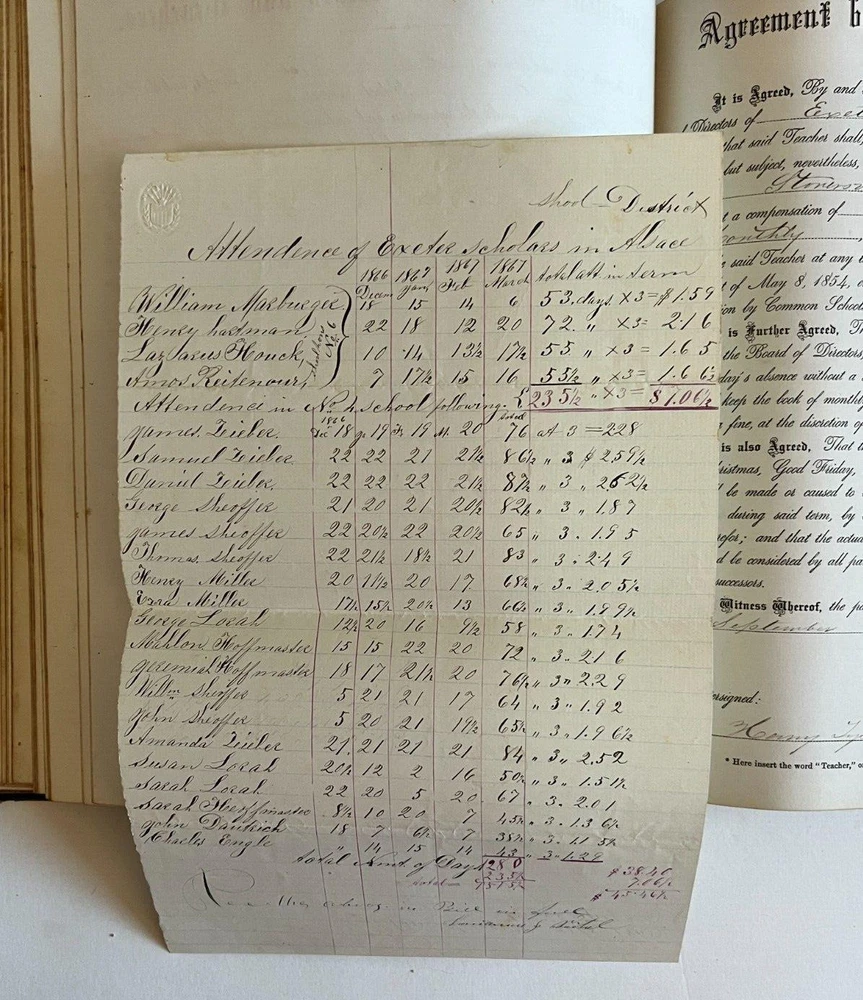 Shool District
Attendence of Exeter Scholars in Alsace
1866 1867 1867 1867 total att in term
Decem Jany Feb March
William Marburger 18 15 14 6 53 days x3 = $1.59
Henry hartman 22 18 12 20 72 " x3= 2.16
No 6
Lazarus Houck 10 14 13½ 17½ 55 " x3= 1.65
Amos Reitenour 7 17½ 15 16 55½ " x3= 1.66½
235½ " x3= $7.06½
Attendence in No 4 School following
1866 total
James Zieber Dec 18 Ja 19 Fe 19 M. 20 76 at 3 = 228
Samuel Zieber 22 22 21 21½ 86½ " 3 $ 2.59½
Daniel Zieber 22 22 22 21½ 87½ " 3 " 262½
George Sheoffer 21 20 21 20½ 82½ " 3 " 1.87
James Sheoffer 22 20½ 22 20½ 65 " 3 . 1.95
Thomas Sheoffer 22 21½ 18½ 21 83 " 3 . 249
Henry Miller 20 11½ 20 17 68½ " 3 " 2.05½
Ezra Miller 17½ 15½ 20½ 13 66½ " 3 " 1.99½
George Lorah 12½ 20 16 9½ 58 " 3 " 1.74
Mahlon Hoffmaster 15 15 22 20 72 " 3 " 216
Jeremiah Hoffmaster 18 17 21½ 20 76½ " 3 " 2.29
Willm Sheoffer 5 21 21 17 64 " 3 " 1.92
John Sheoffer 5 20 21 19½ 65½ " 3 " 1.96½
Amanda Zieber 21 21 21 21 84 " 3 " 2.52
Susan Lorah 20½ 12 2 16 50½ " 3 " 1.51½
Sarah Lorah 22 20 5 20 67 " 3 " 2.01
Sarah Hoffmaster 8½ 10 20 7 45½ " 3 " 1.36½
John Dautrich 18 7 6½ 7 38½ " 3 . 1.15½
Charles Engle " 14 15 14 43 " 3 . 1.29
total Amt. of Days 1280 $ 38.40
235½ 7.06½
total 1515½ $ 45.46½
in full
Agreement b
It is Agreed, By and
Directors of Exet
that said Teacher shall,
but subject, nevertheless,
a compensation of
monthly
said Teacher at any
of May 8, 1854, o
on by Common Schools
is Further Agreed, T
the Board of Directors,
day's absence without a
keep the book of monthl
fine, at the discretion of
is also Agreed, That t
ristmas, Good Friday,
be made or caused to
during said term, by
efor; and that the actua
d be considered by all pa
successors.
Witness Whereof, the pa
September
ersigned:
Henry
* Here insert the word "Teacher," o